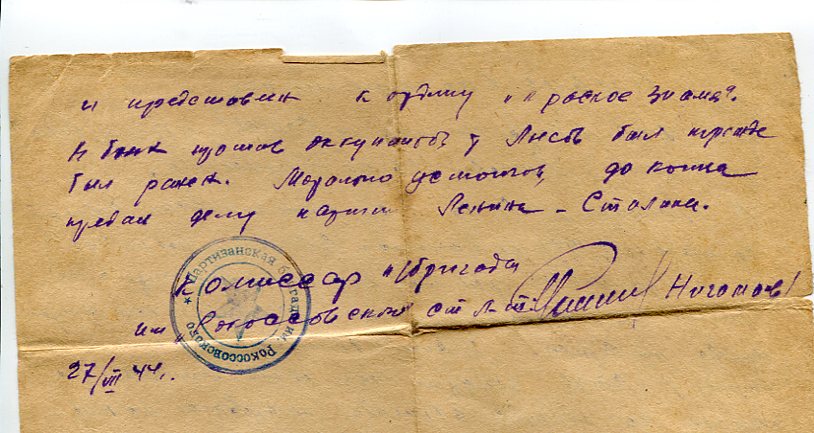 и представлен к ордену „Красное Знамя".
В боях против оккупантов у был
был ранен. Морально устойчив, до конца
предан делу партии Ленина - Сталина.
Комиссар бригады
им. Рокоссовского ст. л-т
27/VIII 44г.
★ Партизанская бригада им. Рокоссовского